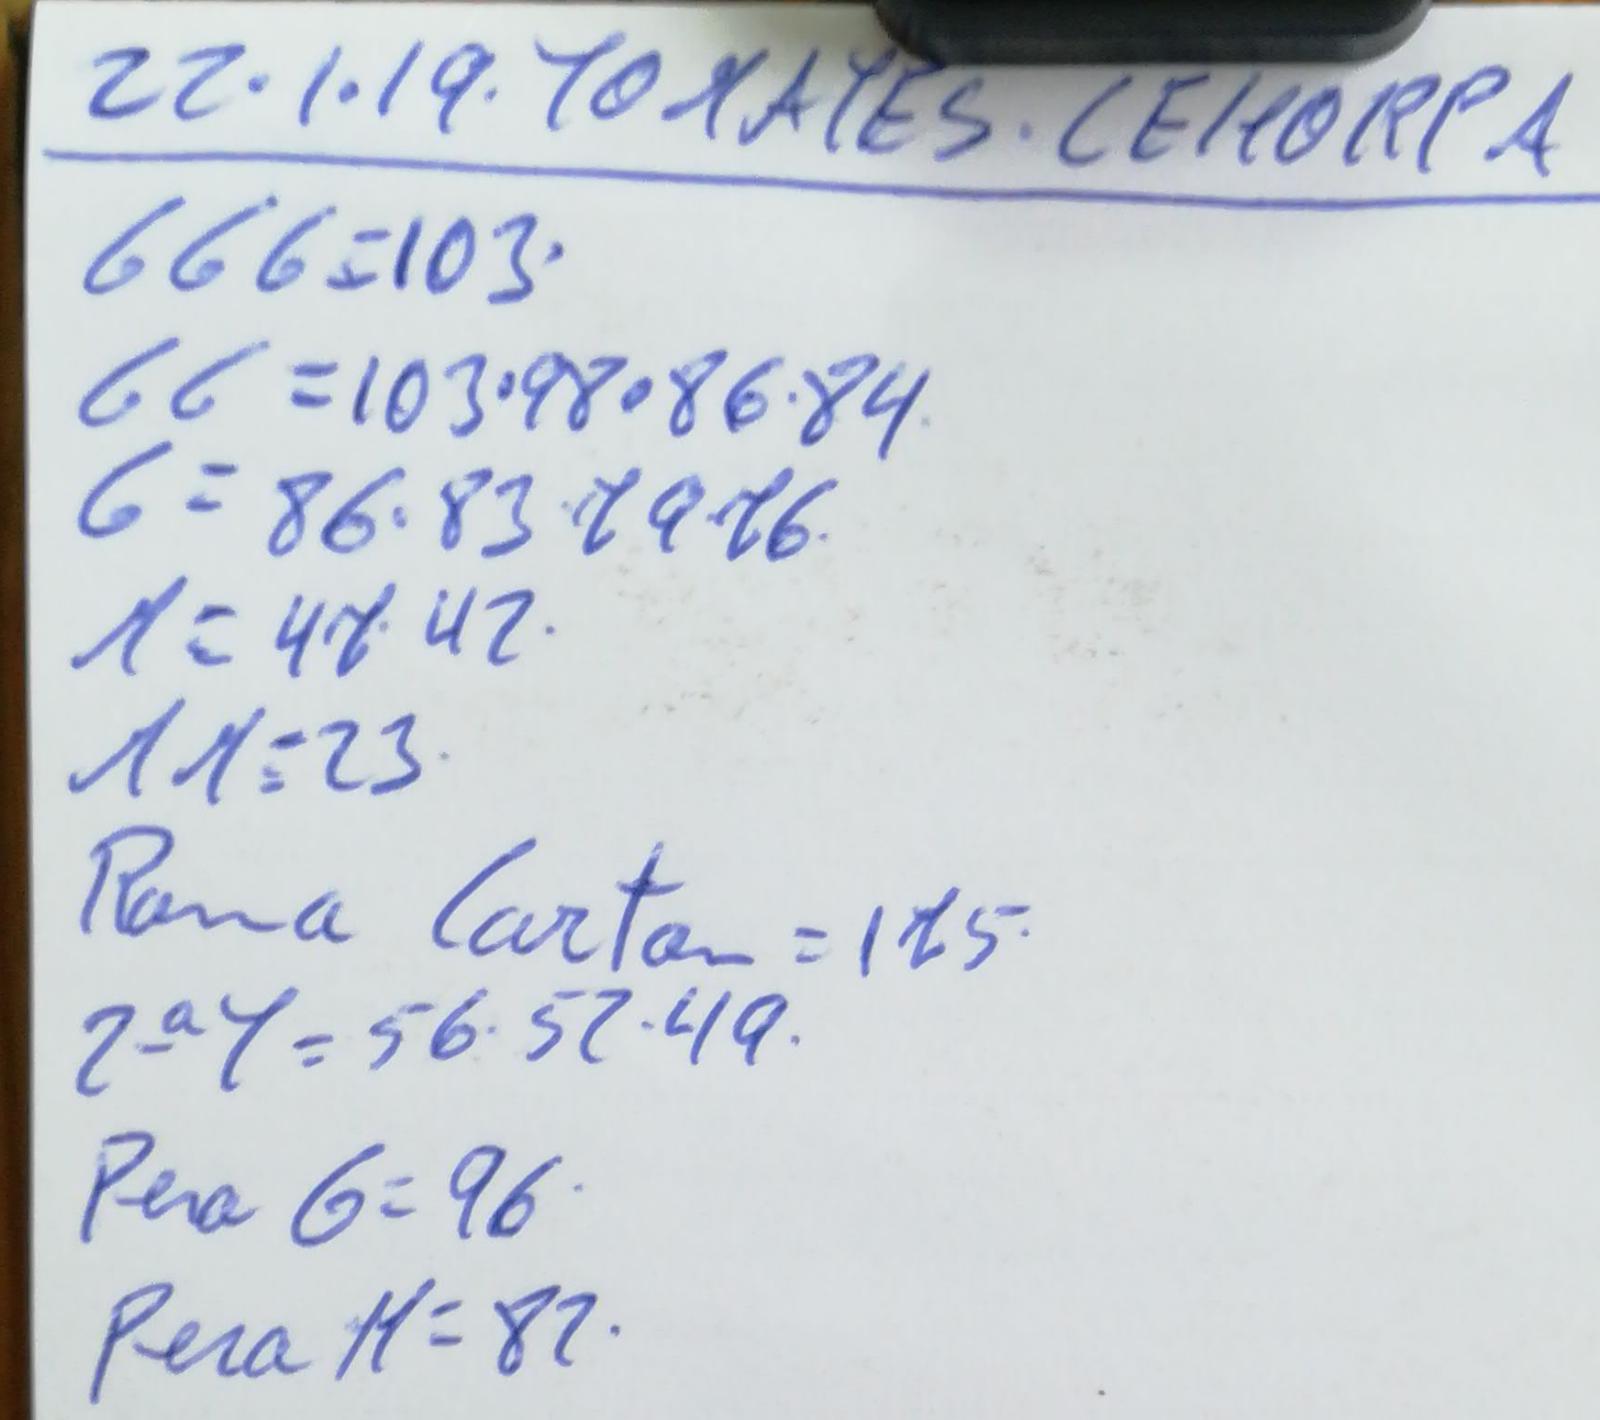 22.1.19. TOMATES. CEHORPA
GGG=103.
GG=103.98.86.84.
G=86.83.79.76.
M=47.42.
MM=23.
Rama Carton=175.
2ªT=56.52.49.
Pera G=96.
Pera M=82.